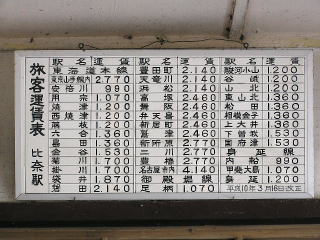 旅客運賃表 比奈駅
駅名 運賃 駅名 運賃 駅名 運賃
東海道本線 豊田町 2.140 駿河小山 1.200
東京山手線内 2.770 天竜川 2.140 谷峨 1.200
安倍川 990 浜松 2.140 山北 1.200
用宗 1.070 高塚 2.460 東山北 1.360
焼津 1.200 舞阪 2.460 松田 1.360
西焼津 1.200 弁天島 2.460 相模金子 1.360
藤枝 1.200 新居町 2.460 上大井 1.360
六合 1.360 鷲津 2.460 下曽我 1.530
島田 1.360 新所原 2.770 国府津 1.530
金谷 1.530 二川 2.770 身延線
菊川 1.700 豊橋 2.770 内船 990
掛川 1.700 名古屋市内 4.140 甲斐大島 1.070
袋井 1.870 御殿場線 身延 1.200
磐田 2.140 足柄 1.070 平成10年3月16日改正